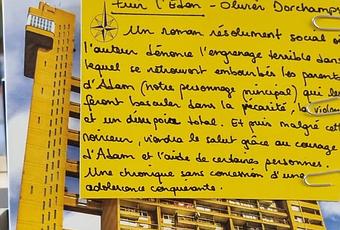 Fuir l'Eden - Olivier Dorchamps
Un roman résolument social où
l'auteur dénonce l'engrenage terrible dans
lequel se retrouvent embourbés les parents
d'Adam (notre personnage principal) qui les
feront basculer dans la précarité, la violence
et un désespoir total. Et puis malgré cette
noirceur, viendra le salut grâce au courage
d'Adam et l'aide de certaines personnes.
Une chronique sans concession d'une
adolescence conquérante.